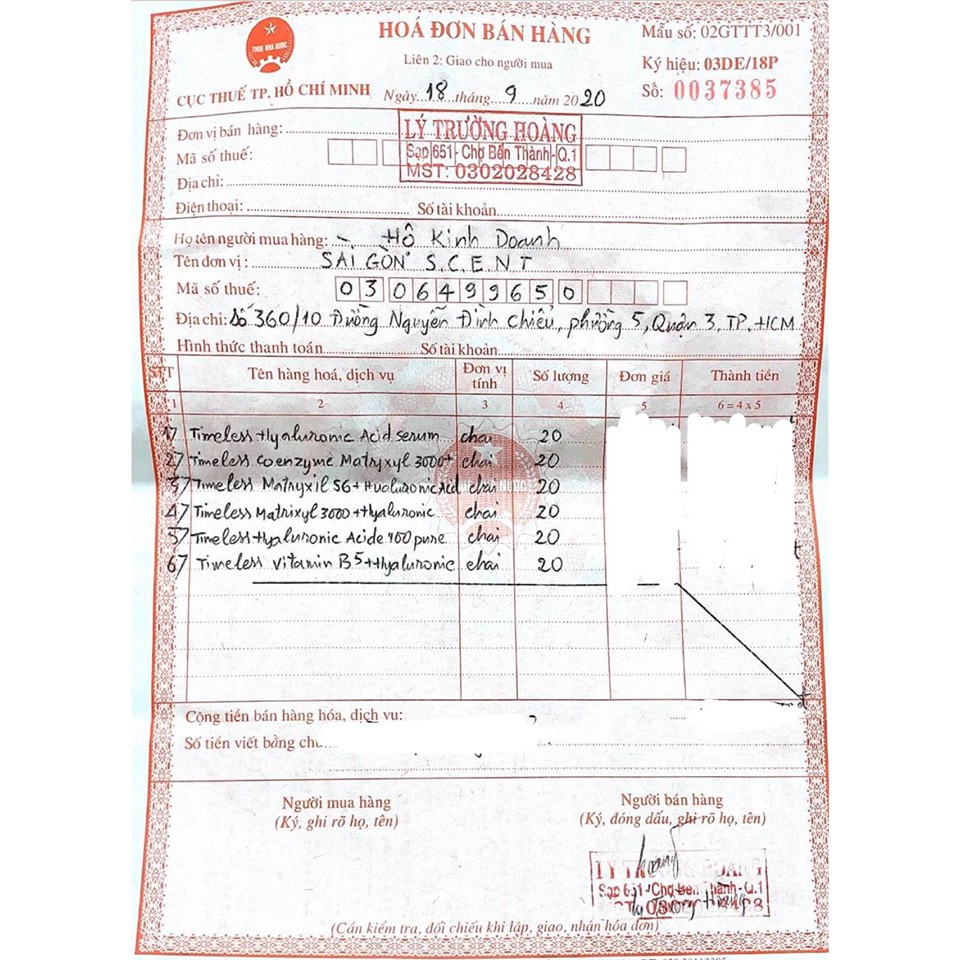 THUẾ NHÀ NƯỚC
HOÁ ĐƠN BÁN HÀNG
Mẫu số: 02GTTT3/001
Liên 2: Giao cho người mua
Ký hiệu: 03DE/18P
CỤC THUẾ TP. HỒ CHÍ MINH
Ngày 18 tháng 9 năm 2020
Số: 0037385
Đơn vị bán hàng:
LÝ TRƯỜNG HOÀNG
Mã số thuế:
Sạp 651 - Chợ Bến Thành - Q.1
MST: 0302028428
Địa chỉ:
Điện thoại: Số tài khoản
Họ tên người mua hàng: Hộ Kinh Doanh
Tên đơn vị: SÀI GÒN S.C.E.N.T
Mã số thuế: 0306499650
Địa chỉ: Số 360/10 Đường Nguyễn Đình Chiểu, phường 5, Quận 3, TP. HCM
Hình thức thanh toán Số tài khoản
STT Tên hàng hoá, dịch vụ Đơn vị tính Số lượng Đơn giá Thành tiền
1 2 3 4 5 6 = 4 x 5
1/ Timeless Hyaluronic Acid serum chai 20
2/ Timeless Coenzyme Matryxyl 3000+ chai 20
3/ Timeless Matryxil S6+Hualuronic Acid chai 20
4/ Timeless Matrixyl 3000+Hyaluronic chai 20
5/ Timeless Hyaluronic Acide 100 pure chai 20
6/ Timeless Vitamin B5+Hyaluronic chai 20
Cộng tiền bán hàng hóa, dịch vụ:
Số tiền viết bằng
Người mua hàng Người bán hàng
(Ký, ghi rõ họ, tên) (Ký, đóng dấu, ghi rõ họ, tên)
LÝ TRƯỜNG HOÀNG
Sạp 651 - Chợ Bến Thành - Q.1
Lý Trường Hoàng
(Cần kiểm tra, đối chiếu khi lập, giao, nhận hóa đơn)